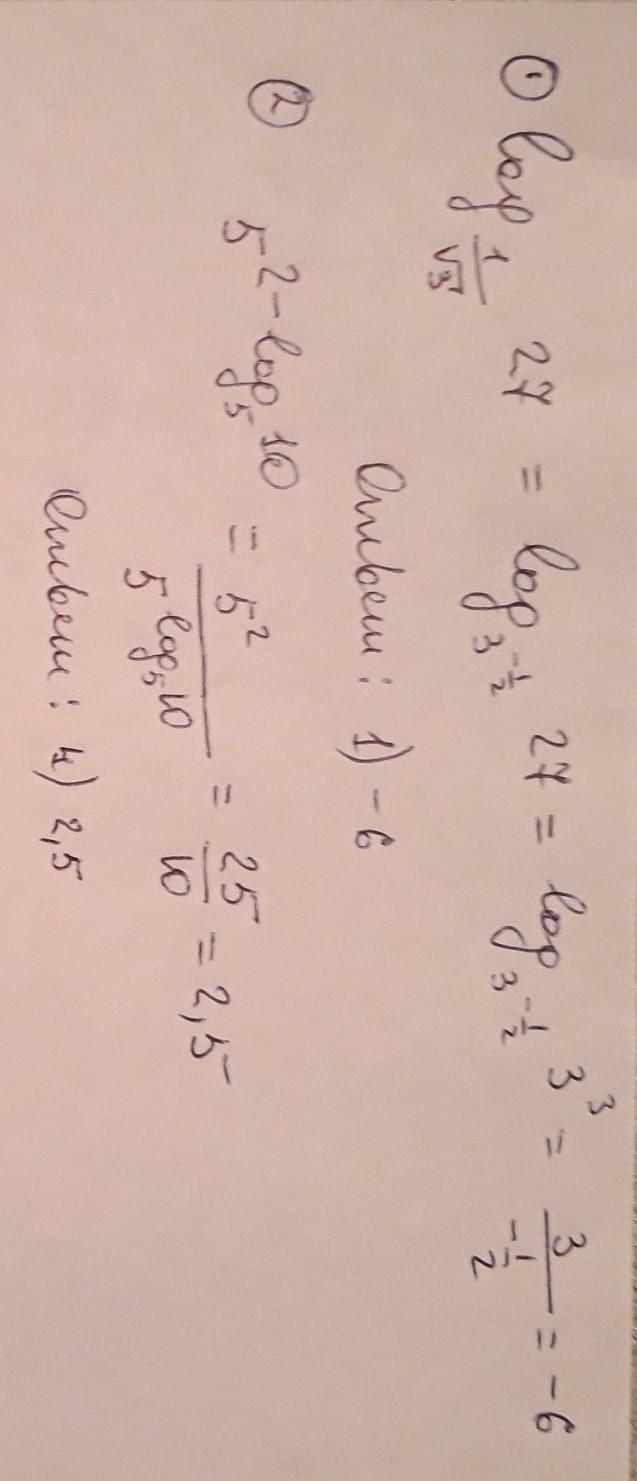 ① log_{1/√3} 27 = log_{3^{-1/2}} 27 = log_{3^{-1/2}} 3³ = 3/(-1/2) = -6
Ответ: 1) -6
② 5^{2-log₅10} = 5²/5^{log₅10} = 25/10 = 2,5
Ответ: 4) 2,5